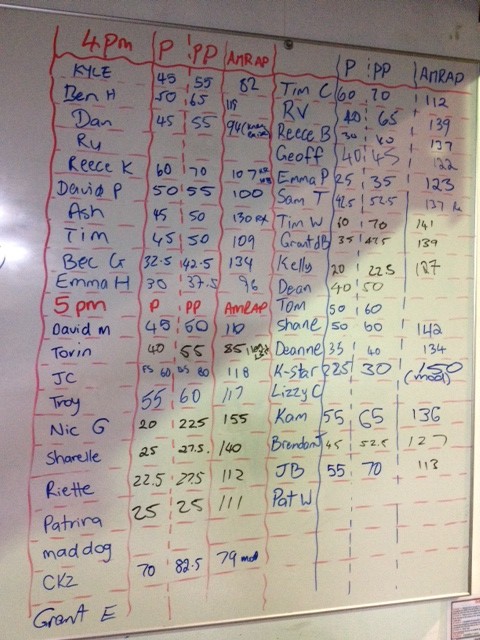 4pm P PP AMRAP
KYLE 45 55 82
Ben H 50 65 118
Dan 45 55 94
Ru
Reece K 60 70 107
David P 50 55 100
Ash 45 50 130 RX
Tim 45 50 109
Bec G 32.5 42.5 134
Emma H 30 37.5 96
5pm P PP AMRAP
David m 45 60 110
Torin 40 55 85
JC FS 60 DS 80 118
Troy 55 60 117
Nic G 20 22.5 155
Sharelle 25 27.5 140
Riette 22.5 27.5 112
Patrina 25 25 111
maddog
CKZ 70 82.5 79 mod
Grant E
P PP AMRAP
Tim C 60 70 112
RV 40 65 139
Reece B 30 40 137
Geoff 40 45 122
Emma P 25 35 123
Sam T 42.5 52.5 137 Rx
Tim W 60 70 141
Grant dB 35 47.5 139
Kelly 20 22.5 127
Dean 40 50
Tom 50 60
Shane 50 60 142
Deanne 35 40 134
K-star 22.5 30 150 (mod)
Lizzy C
Kam 55 65 136
Brendon J 45 52.5 127
JB 55 70 113
Pat W